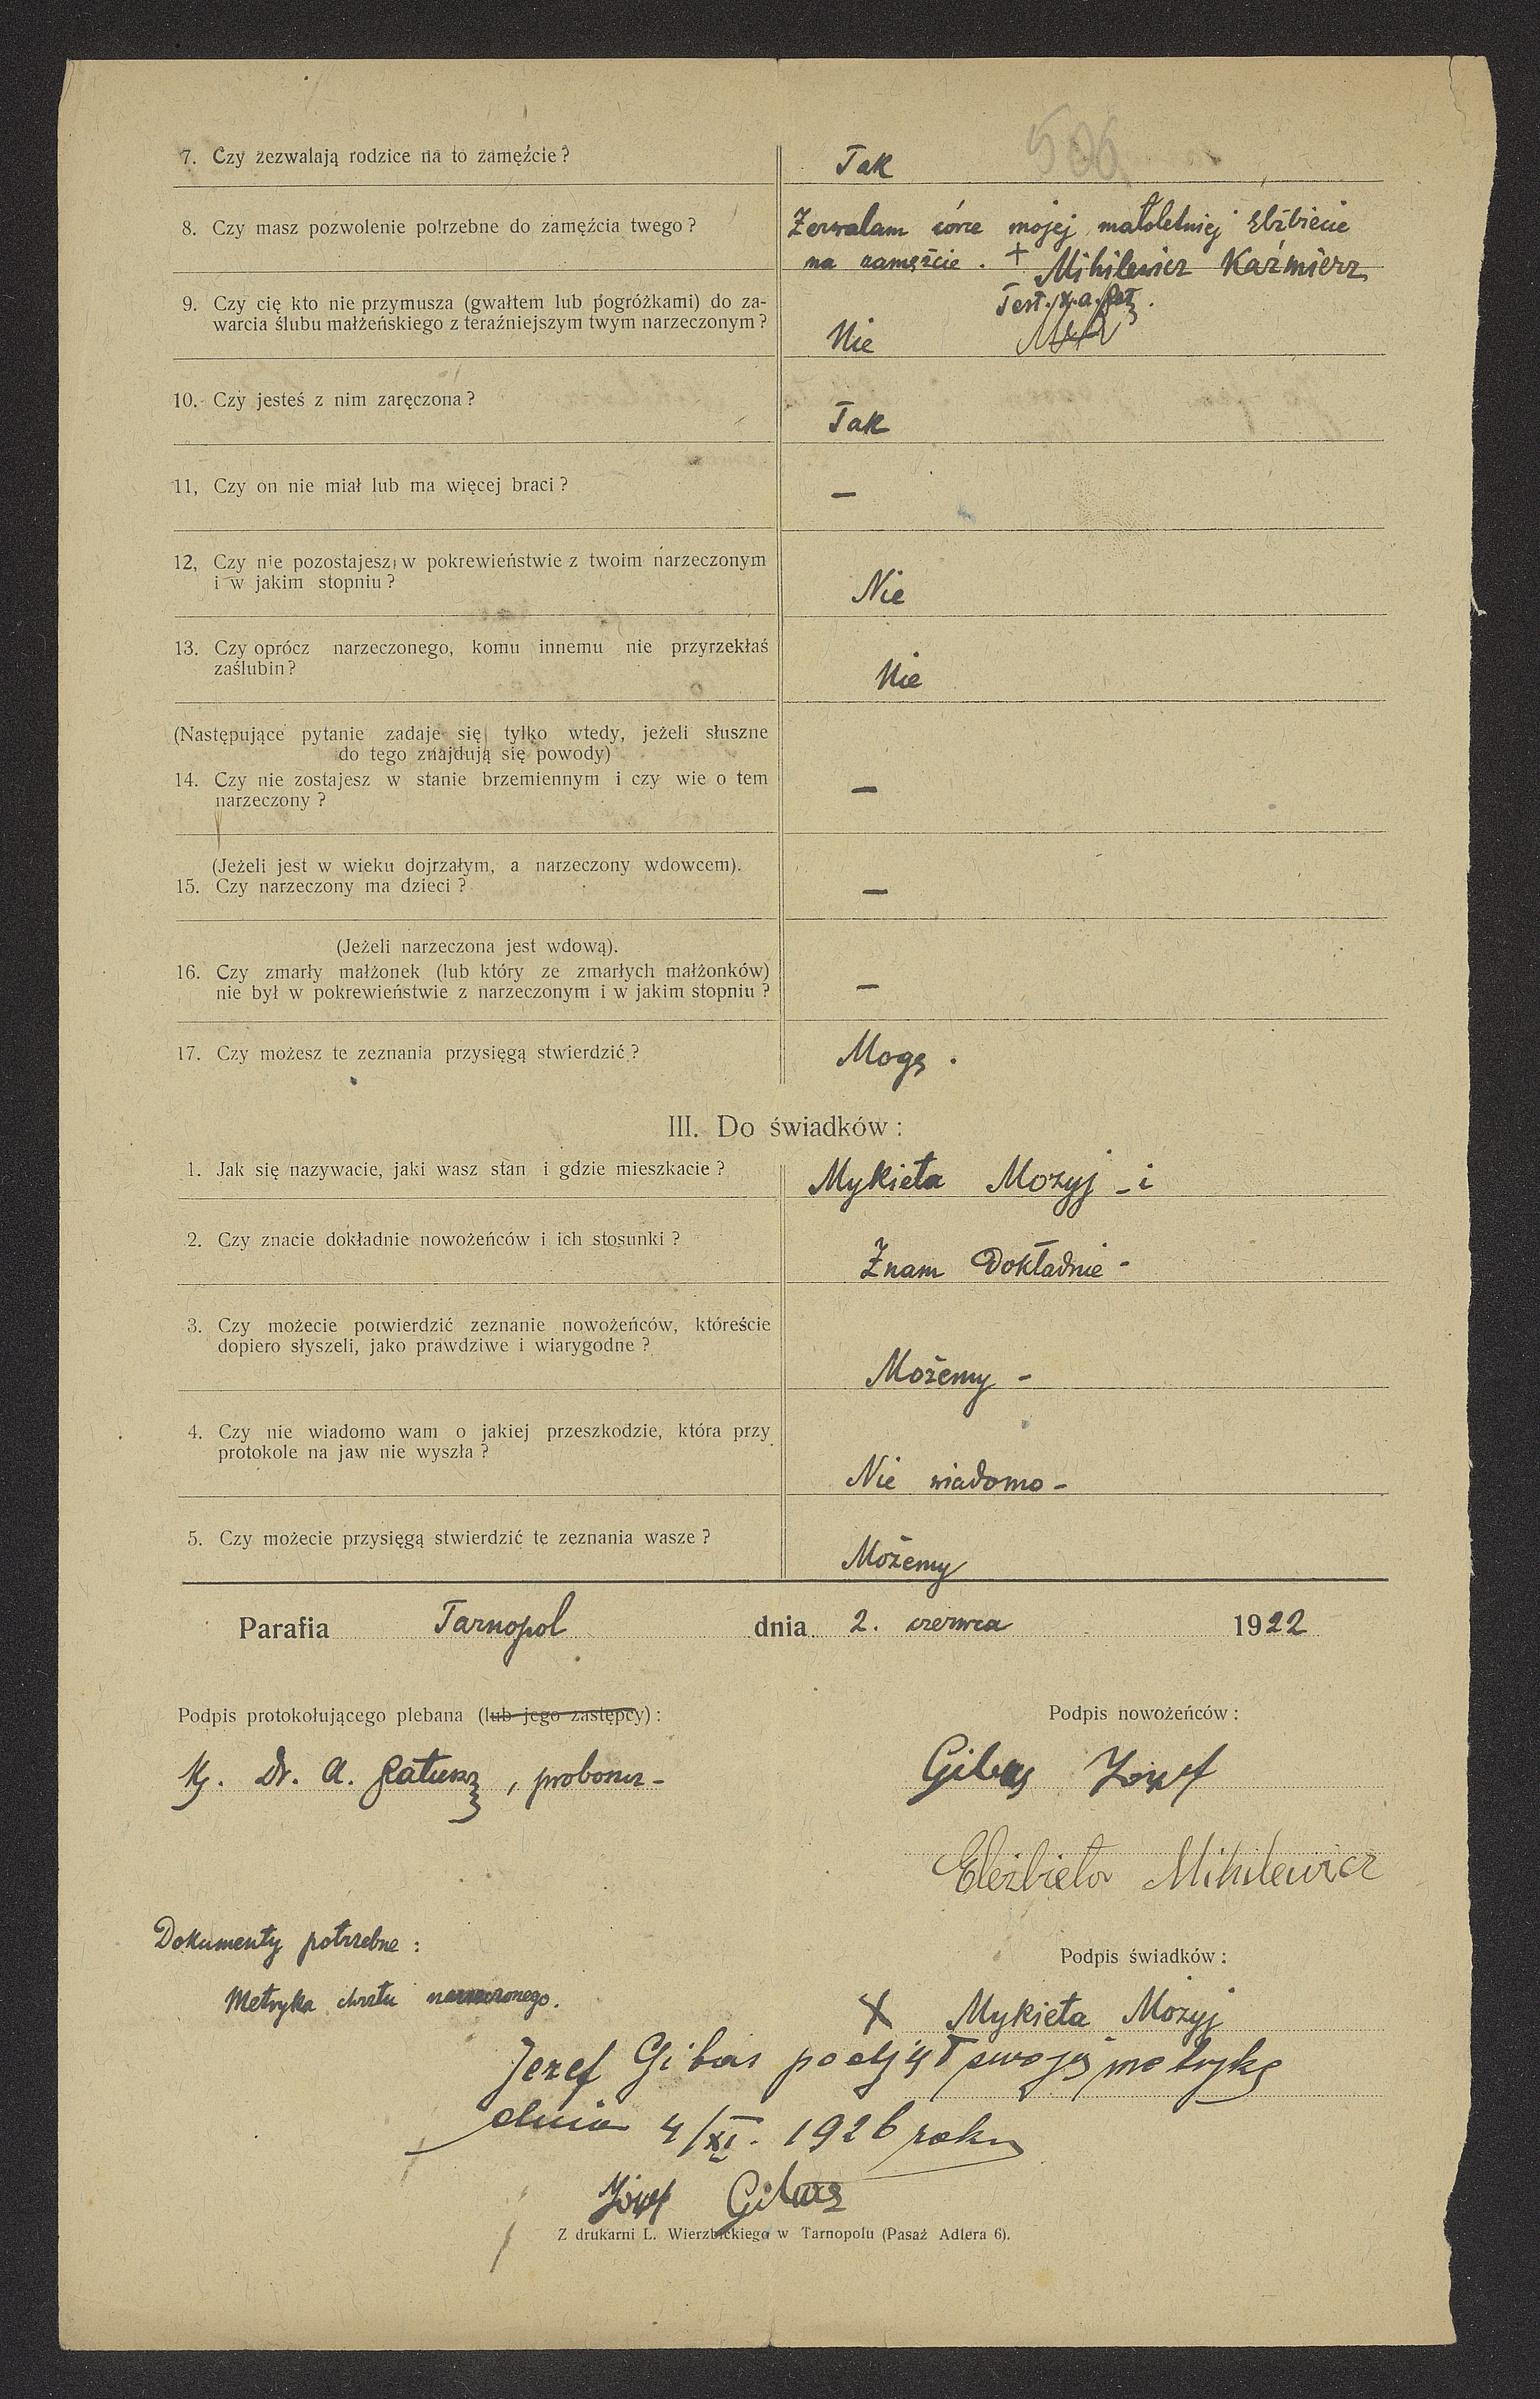 506
7. Czy zezwalają rodzice na to zamęźcie?
Tak
8. Czy masz pozwolenie potrzebne do zamęźcia twego?
Zezwalam córce mojej małoletniej Elżbiecie
na zamęzcie. + Mihilewicz Kaźmierz
9. Czy cię kto nie przymusza (gwałtem lub pogróżkami) do za-
warcia ślubu małżeńskiego z teraźniejszym twym narzeczonym?
Nie
10. Czy jesteś z nim zaręczona?
Tak
11, Czy on nie miał lub ma więcej braci?
—
12, Czy nie pozostajesz w pokrewieństwie z twoim narzeczonym
i w jakim stopniu?
Nie
13. Czy oprócz narzeczonego, komu innemu nie przyrzekłaś
zaślubin?
Nie
(Następujące pytanie zadaje się tylko wtedy, jeżeli słuszne
do tego znajdują się powody)
14. Czy nie zostajesz w stanie brzemiennym i czy wie o tem
narzeczony?
—
(Jeżeli jest w wieku dojrzałym, a narzeczony wdowcem).
15. Czy narzeczony ma dzieci?
—
(Jeżeli narzeczona jest wdową).
16. Czy zmarły małżonek (lub który ze zmarłych małżonków)
nie był w pokrewieństwie z narzeczonym i w jakim stopniu?
—
17. Czy możesz te zeznania przysięgą stwierdzić?
Mogę.
III. Do świadków:
1. Jak się nazywacie, jaki wasz stan i gdzie mieszkacie?
Mykieta Mozyj - i
2. Czy znacie dokładnie nowożeńców i ich stosunki?
Znam Dokładnie -
3. Czy możecie potwierdzić zeznanie nowożeńców, któreście
dopiero słyszeli, jako prawdziwe i wiarygodne?
Możemy -
4. Czy nie wiadomo wam o jakiej przeszkodzie, która przy
protokole na jaw nie wyszła?
Nie wiadomo -
5. Czy możecie przysięgą stwierdzić te zeznania wasze?
Możemy
Parafia Tarnopol dnia 2. czerwca 1922
Podpis protokołującego plebana (lub jego zastępcy):
Podpis nowożeńców:
Dr. A. Ratusz, proboszcz -
Gibas Józef
Elezbieta Mihilewicz
Dokumenty potrzebne:
Podpis świadków:
Metryka chrztu narzeczonego.
X Mykieta Mozyj
Jozef Gibas podjął swoję metrykę
dnia 4/XI. 1926 roku
Józef Gibas
Z drukarni L. Wierzbickiego w Tarnopolu (Pasaż Adlera 6).